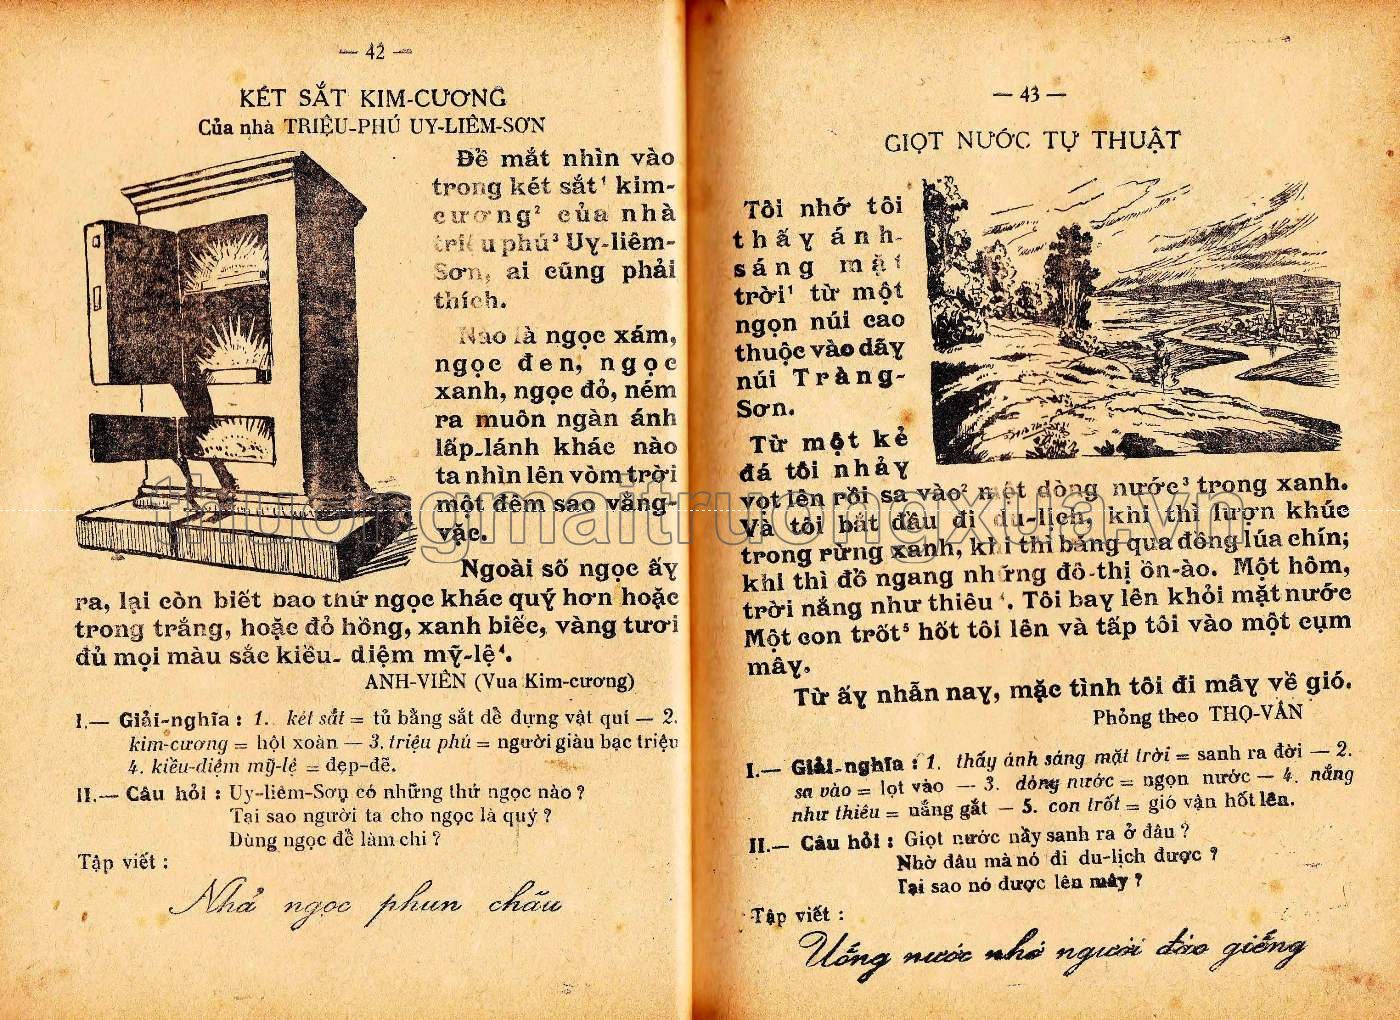 — 42 —
KÉT SẮT KIM-CƯƠNG
Của nhà TRIỆU-PHÚ UY-LIÊM-SƠN
Để mắt nhìn vào
trong két sắt¹ kim-
cương² của nhà
triệu phú³ Uy-liêm-
Sơn, ai cũng phải
thích.
Nào là ngọc xám,
ngọc đen, ngọc
xanh, ngọc đỏ, ném
ra muôn ngàn ánh
lấp-lánh khác nào
ta nhìn lên vòm trời
một đêm sao vằng-
vặc.
Ngoài số ngọc ấy
ra, lại còn biết bao thứ ngọc khác quý hơn hoặc
trong trắng, hoặc đỏ hồng, xanh biếc, vàng tươi
đủ mọi màu sắc kiều- diệm mỹ-lệ⁴.
ANH-VIÊN (Vua Kim-cương)
I.— Giải-nghĩa : 1. két sắt = tủ bằng sắt để đựng vật quí — 2.
kim-cương = hột xoàn — 3. triệu phú = người giàu bạc triệu
4. kiều-diệm mỹ-lệ = đẹp-đẽ.
II.— Câu hỏi : Uy-liêm-Sơn có những thứ ngọc nào ?
Tại sao người ta cho ngọc là quý ?
Dùng ngọc để làm chi ?
Tập viết :
Nhả ngọc phun châu
— 43 —
GIỌT NƯỚC TỰ THUẬT
Tôi nhớ tôi
thấy ánh-
sáng mặt
trời¹ từ một
ngọn núi cao
thuộc vào dãy
núi Tràng-
Sơn.
Từ một kẻ
đá tôi nhảy
vọt lên rồi sa vào² một dòng nước³ trong xanh.
Và tôi bắt đầu đi du-lịch, khi thì lượn khúc
trong rừng xanh, khi thì băng qua đồng lúa chín;
khi thì đổ ngang những đô-thị ồn-ào. Một hôm,
trời nắng như thiêu⁴. Tôi bay lên khỏi mặt nước
Một con trốt⁵ hốt tôi lên và tấp tôi vào một cụm
mây.
Từ ấy nhẫn nay, mặc tình tôi đi mây về gió.
Phỏng theo THỌ-VÂN
I.— Giải-nghĩa : 1. thấy ánh sáng mặt trời = sanh ra đời — 2.
sa vào = lọt vào — 3. dòng nước = ngọn nước — 4. nắng
như thiêu = nắng gắt — 5. con trốt = gió vận hốt lên.
II.— Câu hỏi : Giọt nước nầy sanh ra ở đâu ?
Nhờ đâu mà nó đi du-lịch được ?
Tại sao nó được lên mây ?
Tập viết :
Uống nước nhớ người đào giếng
thuongmaitruongxua.vn